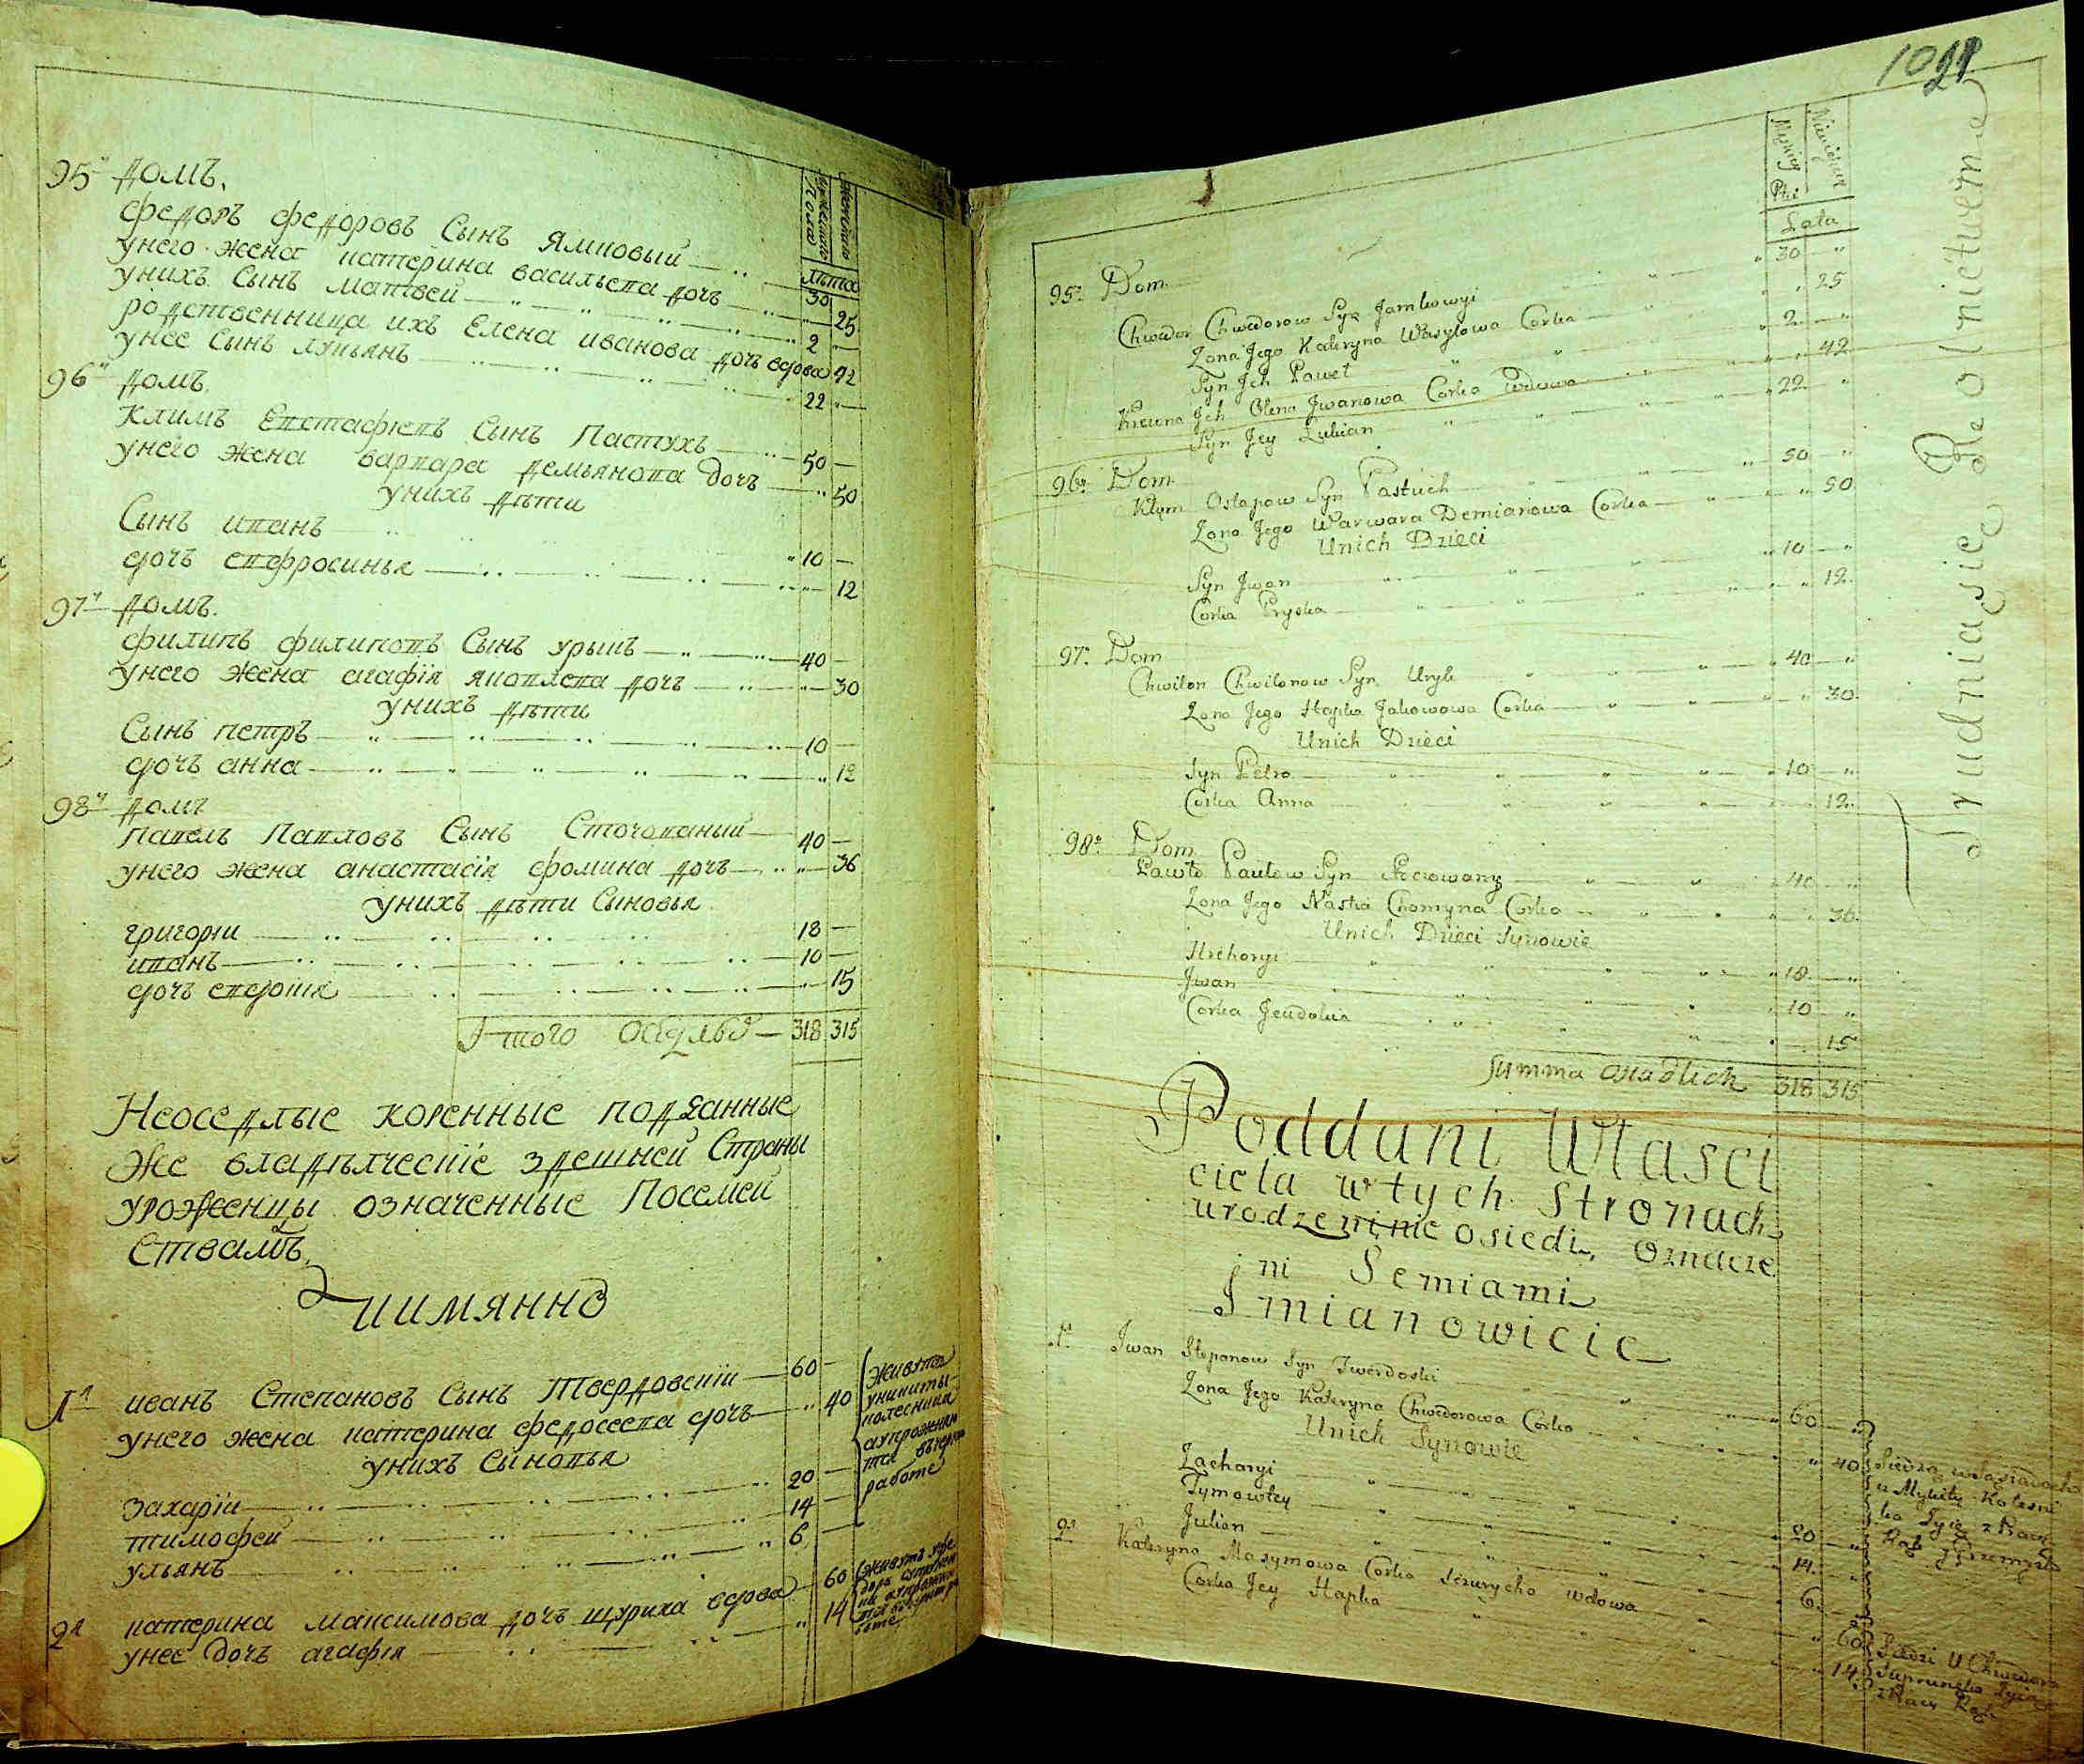 95й домъ.
мужеска
женска
пола
лѣта
федоръ федоровъ Сынъ Ямковый 30
унего жена катерина васильева дочь 25
унихъ Сынъ матвей 2
родственница ихъ Елена иванова дочь вдова 42
унее Сынъ лукьянъ 22
96й домъ.
Климъ Евстафіевъ Сынъ Пастухъ 50
унего жена варвара демьянова дочь 50
унихъ дѣти
Сынъ иванъ 10
дочь евфросинья 12
97й домъ.
филипъ филиповъ Сынъ урыцъ 40
унего жена агафія яковлева дочь 30
унихъ дѣти
Сынъ петръ 10
дочь анна 12
98й домъ
Павелъ Павловъ Сынъ Сточованый 40
унего жена анастасія фомина дочь 36
унихъ дѣти Сыновья
григории 18
иванъ 10
дочь евдокия 15
Итого 318 315
Неоседлые коренные подданные
же владѣлческіе здешней Страны
уроженцы означенные Посемей
ствамъ
иимянно
1й иванъ Степановъ Сынъ Твердовскіи 60
унего жена катерина федосеева дочь 40
унихъ Сыновья
захаріи 20
тимофей 14
ульянъ 6
живутъ
уникиты
колесника
аупражняю
тся вчерно
работе
2я катерина максимова дочь щуриха вдова 60
унее дочь агафія 14
1021
Męskiey
Płci
Lata
95e Dom
Chwedor Chwedorow Syn Jamkowyi 30
Zona Jego Kateryna Wasylowa Corka 25
Syn Jch Paweł 2
Krewna Jch Olena Jwanowa Corka Wdowa 42
Syn Jey Lukian 22
96e Dom
Klym Ostapow Syn Pastuch 50
Zona Jego Warwara Demianowa Corka 50
Unich Dzieci
Syn Jwan 10
Corka Pryska 12
97e Dom
Chwilon Chwilonow Syn Uryk 40
Zona Jego Hapka Jakowowa Corka 30
Unich Dzieci
Syn Petro 10
Corka Anna 12
98e Dom
Pawło Pawłow Syn Stoczowany 40
Zona Jego Nastia Chomyna Corka 36
Unich Dzieci Synowie
Hrehoryi 18
Jwan 10
Corka Jewdokia 15
Summa osiadlich 318 315
Poddani Własci
ciela wtych Stronach
urodzeni nie osiedli, Oznacze
ni Semiami
Jmianowicie
1e Jwan Stepanow Syn Twerdoski 60
Zona Jego Kateryna Chwedorowa Corka 40
Unich Synowie
Zacharyi 20
Tymowtey 14
Julian 6
Siedzą wSąsiadach
u Mykity Kolesni
ka Żyią z Pracy
Rąk
2a Kateryna Maxymowa Corka Szczurycha wdowa 60
Corka Jey Hapka 14
Siedzi U Chwedora
Suprunska Żyią
zPracy Rąk
Trudnią się Rolnictwem